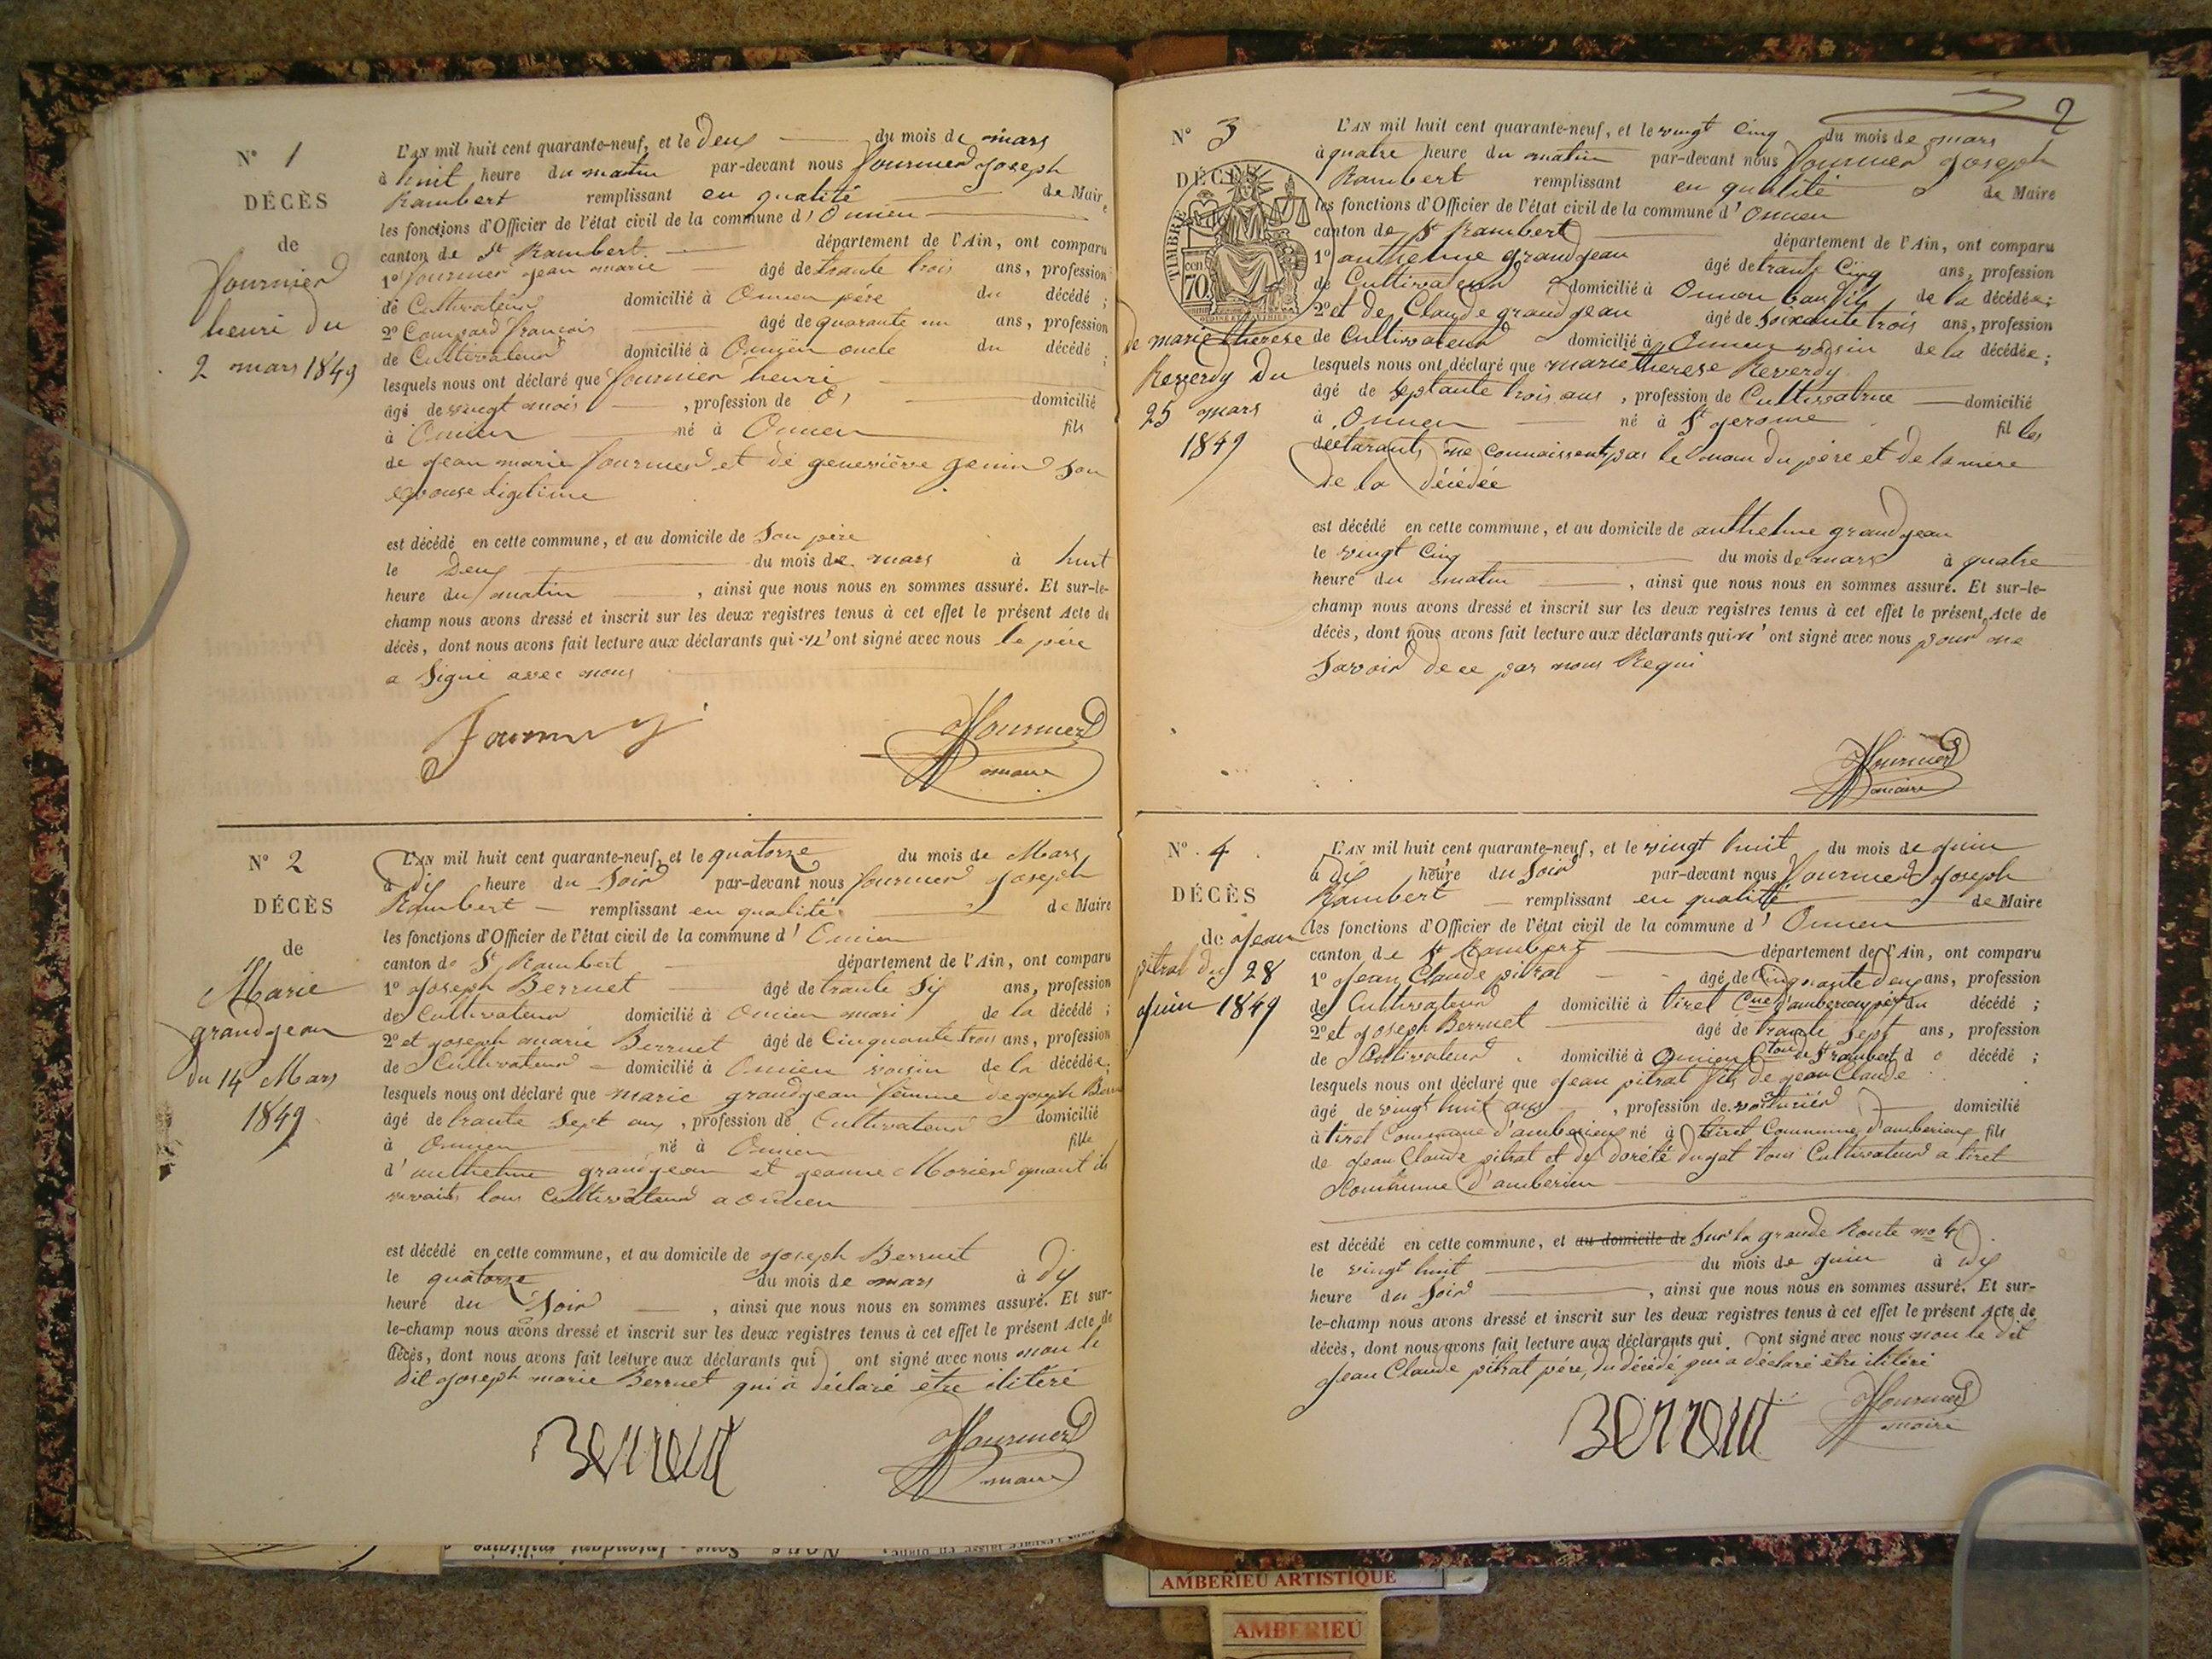 N° 1
DÉCÈS
de
fournier
henri du
2 mars 1849
L'AN mil huit cent quarante-neuf, et le deux du mois de mars
à huit heure du matin par-devant nous fournier joseph
Rambert remplissant en qualité de Maire
les fonctions d'Officier de l'état civil de la commune d' Oncieu
canton de St Rambert département de l'Ain, ont comparu
1° fournier jean marie âgé de trante trois ans, profession
de Cultivateur domicilié à Oncieu père du décédé ;
2° françois âgé de quarante un ans, profession
de Cultivateur domicilié à Oncieu oncle du décédé ;
lesquels nous ont déclaré que fournier henri
âgé de vingt mois , profession de domicilié
à Oncieu né à Oncieu fils
de jean marie fournier et de geneviève genin son
epouse
est décédé en cette commune, et au domicile de son père
le deux du mois de mars à huit
heure du matin , ainsi que nous nous en sommes assuré. Et sur-le-
champ nous avons dressé et inscrit sur les deux registres tenus à cet effet le présent Acte de
décès, dont nous avons fait lecture aux déclarants qui n'ont signé avec nous le père
a signé avec nous
fournier
maire
N° 2
DÉCÈS
de
Marie
grandjean
du 14 Mars
1849
L'AN mil huit cent quarante-neuf, et le quatorze du mois de Mars
à dix heure du soir par-devant nous fournier joseph
Rambert remplissant en qualité de Maire
les fonctions d'Officier de l'état civil de la commune d' Oncieu
canton de St Rambert département de l'Ain, ont comparu
1° joseph Berruet âgé de trante six ans, profession
de Cultivateur domicilié à Oncieu mari de la décédé ;
2° et joseph marie Berruet âgé de Cinquante trois ans, profession
de Cultivateur domicilié à Oncieu voisin de la décédée;
lesquels nous ont déclaré que marie grandjean femme de joseph
âgé de trante sept ans , profession de Cultivateur domicilié
à Oncieu né à Oncieu fille
d'anthelme grandjean et jeanne Morier quant ils
vivaits tous cultivateur a oncieu
est décédé en cette commune, et au domicile de joseph Berruet
le quatorze du mois de mars à dix
heure du soir , ainsi que nous nous en sommes assuré. Et sur-
le-champ nous avons dressé et inscrit sur les deux registres tenus à cet effet le présent Acte de
décès, dont nous avons fait lecture aux déclarants qui ont signé avec nous non le
dit joseph marie Berruet qui a déclaré etre
Berruet
fournier
maire
2
N° 3
DÉCÈS
TIMBRE
70
de marie therese
Reverdy du
25 mars
1849
L'AN mil huit cent quarante-neuf, et le vingt cinq du mois de mars
à quatre heure du matin par-devant nous fournier joseph
Rambert remplissant en qualité de Maire
les fonctions d'Officier de l'état civil de la commune d' Oncieu
canton de St Rambert département de l'Ain, ont comparu
1° anthelme grandjean âgé de trante Cinq ans, profession
de Cultivateur domicilié à Oncieu de la décédée;
2° et de Claude grandjean âgé de soixante trois ans, profession
de Cultivateur domicilié à Oncieu voisin de la décédée;
lesquels nous ont déclaré que marie therese Reverdy
âgé de septante trois ans , profession de Cultivatrice domicilié
à Oncieu né à St jerome fil les
declarants ne connaissent pas le nom du père et de la mère
de la décédée
est décédé en cette commune, et au domicile de anthelme grandjean
le vingt cinq du mois de mars à quatre
heure du matin , ainsi que nous nous en sommes assuré. Et sur-le-
champ nous avons dressé et inscrit sur les deux registres tenus à cet effet le présent Acte de
décès, dont nous avons fait lecture aux déclarants qui n'ont signé avec nous pour ne
savoir de ce par nous Requi
fournier
maire
N° 4
DÉCÈS
de jean
pitrat du 28
juin 1849
L'AN mil huit cent quarante-neuf, et le vingt huit du mois de juin
à dix heure du soir par-devant nous fournier joseph
Rambert remplissant en qualité de Maire
les fonctions d'Officier de l'état civil de la commune d' Oncieu
canton de St Rambert département de l'Ain, ont comparu
1° jean Claude pitrat âgé de Cinquante deux ans, profession
de Cultivateur domicilié à tiret Cne d'amberieux père du décédé ;
2° et joseph Berruet âgé de trante sept ans, profession
de Cultivateur domicilié à Oncieu Cton de St rambert d décédé ;
lesquels nous ont déclaré que jean pitrat fils de jean Claude
âgé de vingt huit ans , profession de voiturier domicilié
à tiret Commune d'amberieux né à tiret Commune d'amberieux fils
de jean Claude pitrat et de dugat tous Cultivateur a tiret
Commune d'amberieu
est décédé en cette commune, et au domicile de sur la grande Route no 4
le vingt huit du mois de juin à dix
heure du soir , ainsi que nous nous en sommes assuré. Et sur-
le-champ nous avons dressé et inscrit sur les deux registres tenus à cet effet le présent Acte de
décès, dont nous avons fait lecture aux déclarants qui ont signé avec nous non le dit
jean Claude pitrat père, du décédé qui a déclaré être
Berruet
fournier
maire
AMBERIEU ARTISTIQUE
AMBERIEU